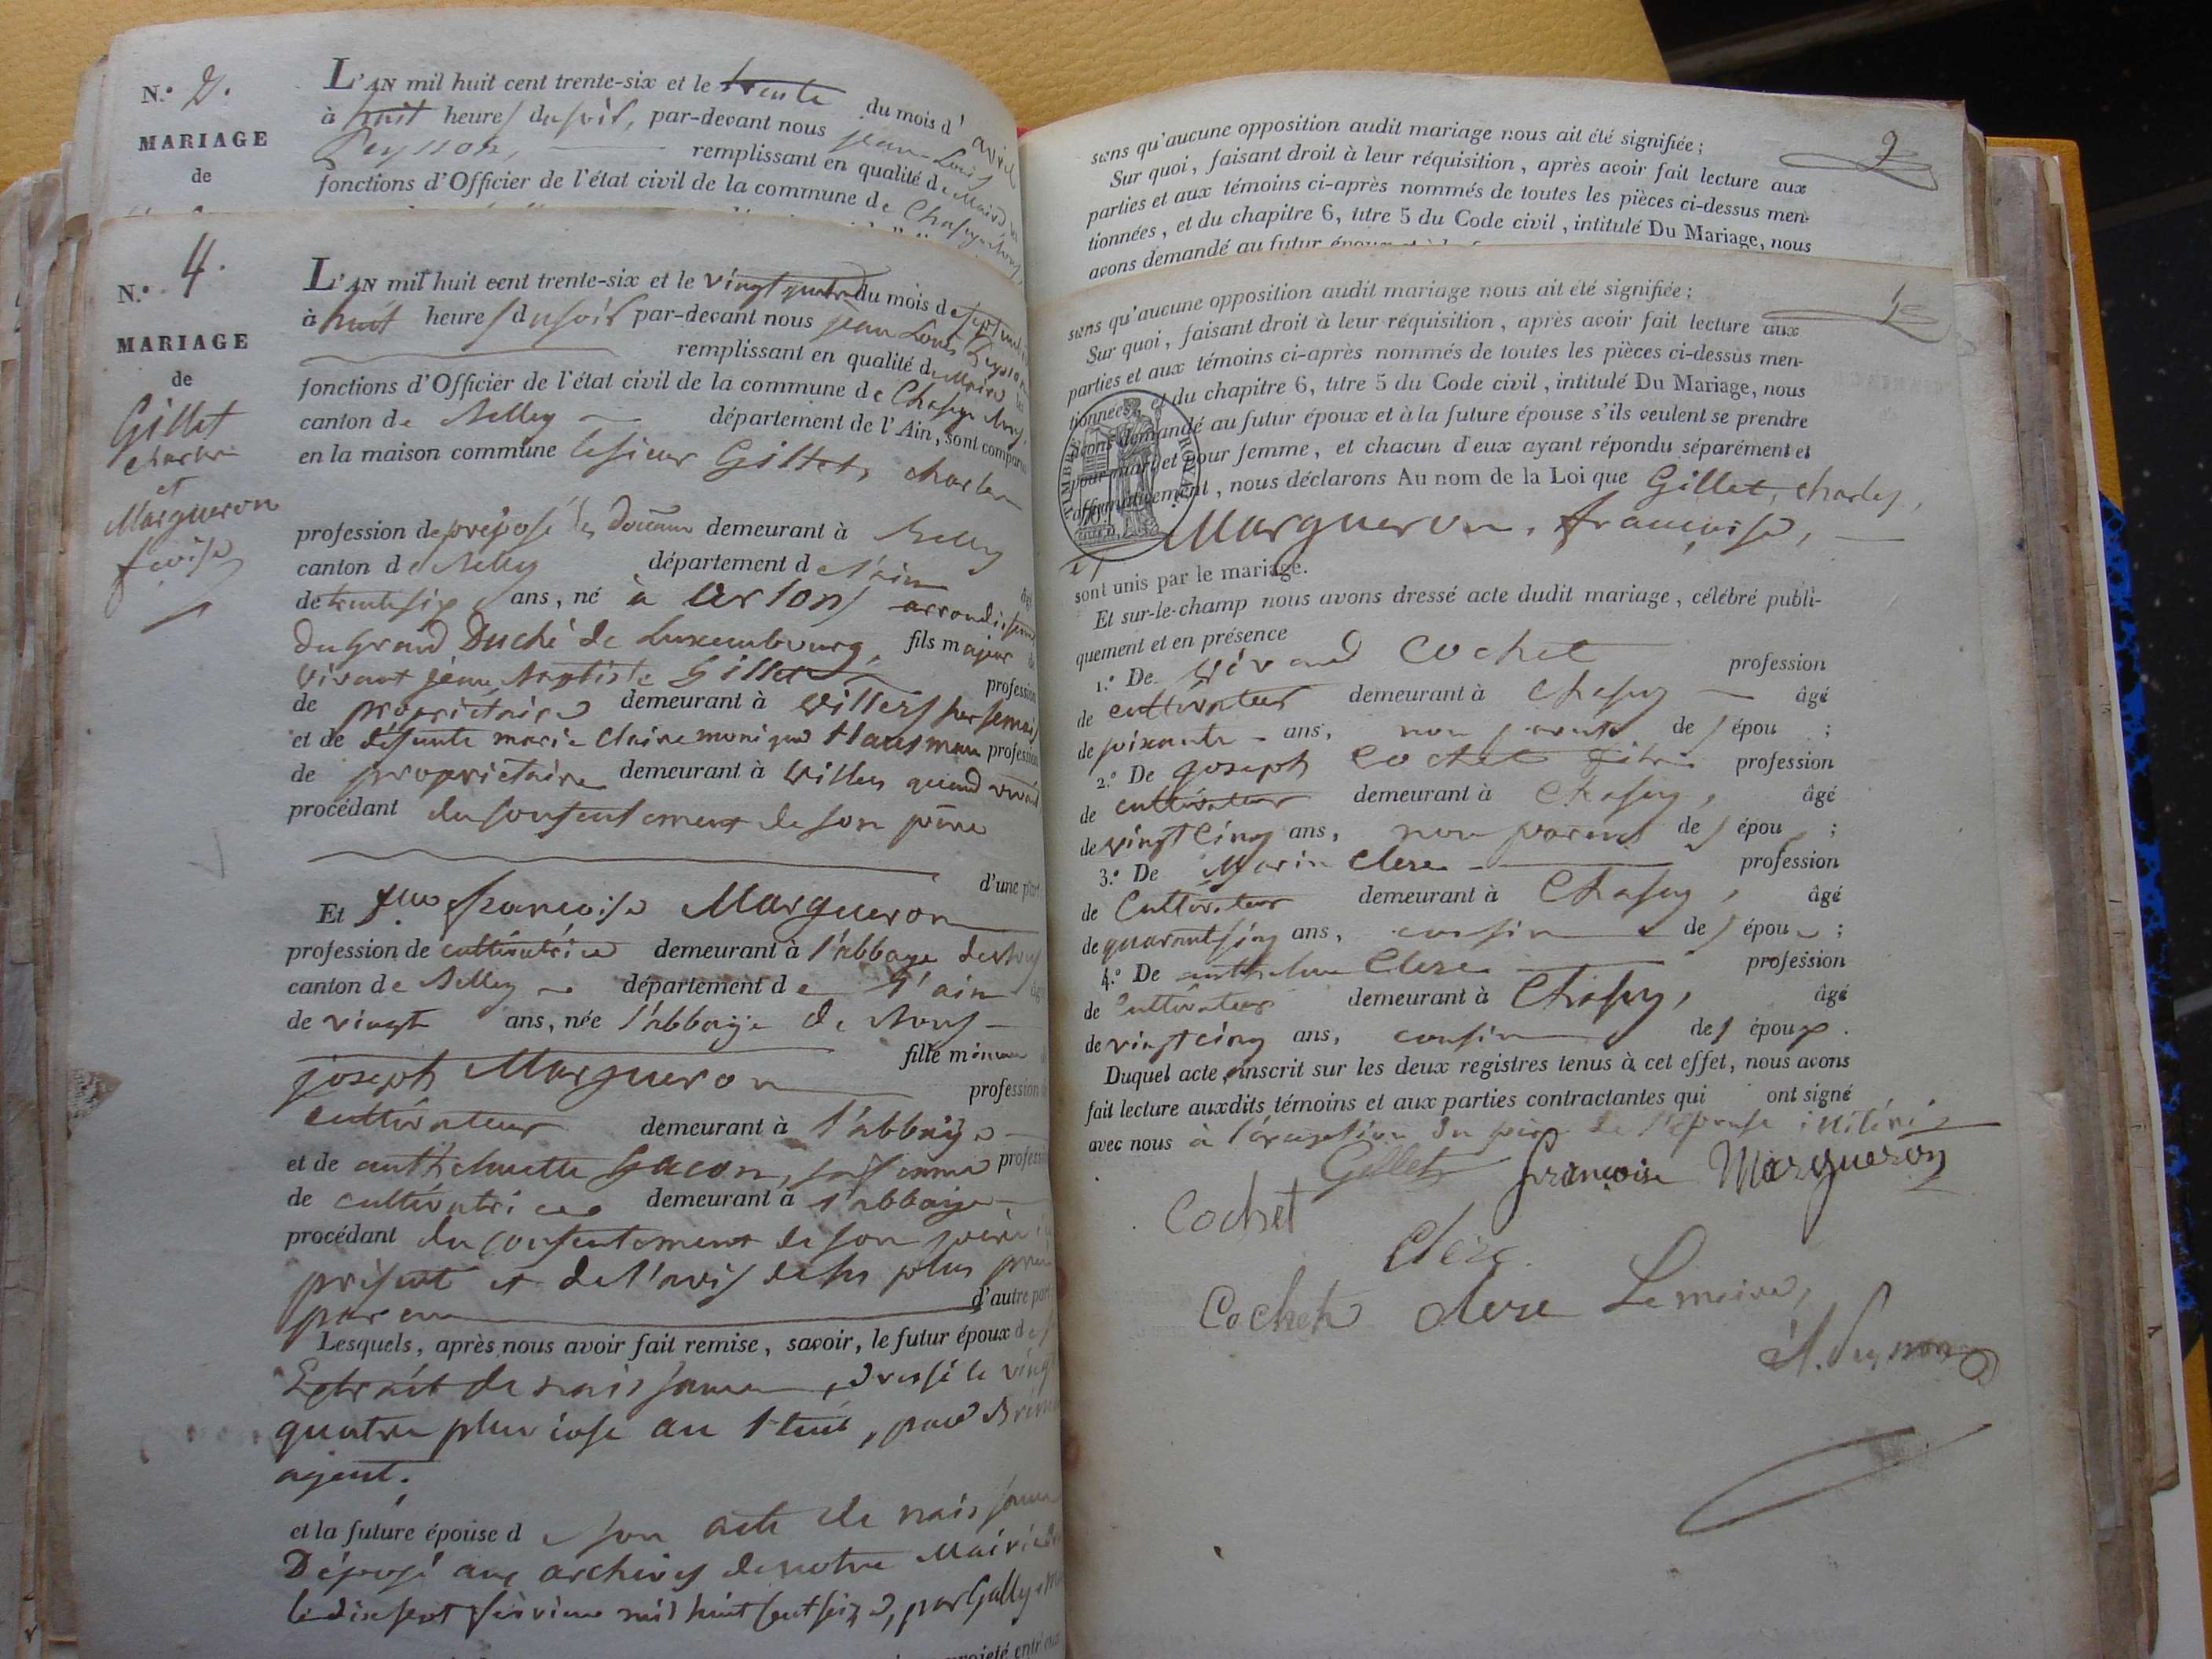 N.º 2.
MARIAGE
de
L'AN mil huit cent trente-six et le trente du mois d'avril
à huit heures du soir, par-devant nous jean Louis
Peysson, remplissant en qualité de Maire les
fonctions d'Officier de l'état civil de la commune de
N.º 4.
MARIAGE
de
Gillet
Charles
et
Margueron
L'AN mil huit cent trente-six et le vingt quatre du mois de septembre
à huit heures du soir par-devant nous jean Louis Peysson
remplissant en qualité de Maire les
fonctions d'Officier de l'état civil de la commune de
canton de Belley département de l'Ain, sont comparus
en la maison commune le sieur Gillet, charles
profession de préposé des Douanes demeurant à Belley
canton de Belley département de l'ain
de trente six ans, né à arlons arrondissement
du Grand Duché de Luxembourg, fils majeur de
vivant jean Baptiste Gillet profession
de propriétaire demeurant à Villers sur Semois
et de défunte marie Claire monique Hausman profession
de propriétaire demeurant à Villers quand vivait
procédant du consentement de son père
d'une part
Et françoise Margueron
profession de cultivatrice demeurant à l'abbaye
canton de Belley département de l'ain
de vingt ans, née l'abbaye de
fille mineure
joseph Margueron profession
cultivateur demeurant à l'abbaye
et de anthelmette Gacon, sa femme profession
de cultivatrice demeurant à l'abbaye
procédant du consentement de son père ici
présent et de l'avis de ses plus
paren d'autre part
Lesquels, après nous avoir fait remise, savoir, le futur époux de s
Extrait de naissance, dressé le vingt
quatre pluviose an huit, par
agent.
et la future épouse d e son acte de naissance
Déposé aux archives de notre Mairie
le dix sept février mil huit cent seize, par Gally
projeté entre eux
2
sans qu'aucune opposition audit mariage nous ait été signifiée;
Sur quoi, faisant droit à leur réquisition, après avoir fait lecture aux
parties et aux témoins ci-après nommés de toutes les pièces ci-dessus men-
tionnées, et du chapitre 6, titre 5 du Code civil, intitulé Du Mariage, nous
avons demandé au futur époux
sans qu'aucune opposition audit mariage nous ait été signifiée;
Sur quoi, faisant droit à leur réquisition, après avoir fait lecture aux
parties et aux témoins ci-après nommés de toutes les pièces ci-dessus men-
tionnées, et du chapitre 6, titre 5 du Code civil, intitulé Du Mariage, nous
avons demandé au futur époux et à la future épouse s'ils veulent se prendre
pour mari et pour femme, et chacun d'eux ayant répondu séparément et
affirmativement, nous déclarons Au nom de la Loi que Gillet, charles,
et Margueron, françoise,
TIMBRE ROYAL
sont unis par le mariage.
Et sur-le-champ nous avons dressé acte dudit mariage, célébré publi-
quement et en présence
1.º De Cochet profession
de cultivateur demeurant à Chasey âgé
de soixante ans, non parent de s épou ;
2.º De joseph Cochet profession
de cultivateur demeurant à Chasey, âgé
de vingt cinq ans, non parent de s épou ;
3.º De Marin Clerc profession
de Cultivateur demeurant à Chasey, âgé
de quarante cinq ans, cousin de s épou ;
4.º De anthelme Clerc profession
de Cultivateur demeurant à Chasey, âgé
de vingt cinq ans, cousin de s époux.
Duquel acte, inscrit sur les deux registres tenus à cet effet, nous avons
fait lecture auxdits témoins et aux parties contractantes qui ont signé
avec nous à l'exception du père de l'épouse
Gillet françoise Margueron
Cochet
Clerc.
Cochet Clerc Le maire,
Peysson